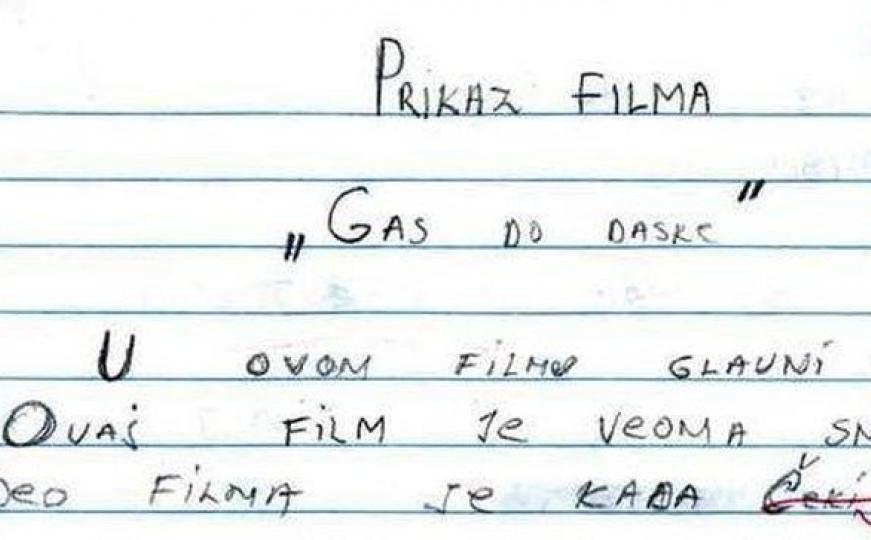 PRIKAZ FILMA
„GAS DO DASKE”
U OVOM FILMU GLAVNI
OVAJ FILM JE VEOMA SM
DEO FILMA JE KADA ČEKI